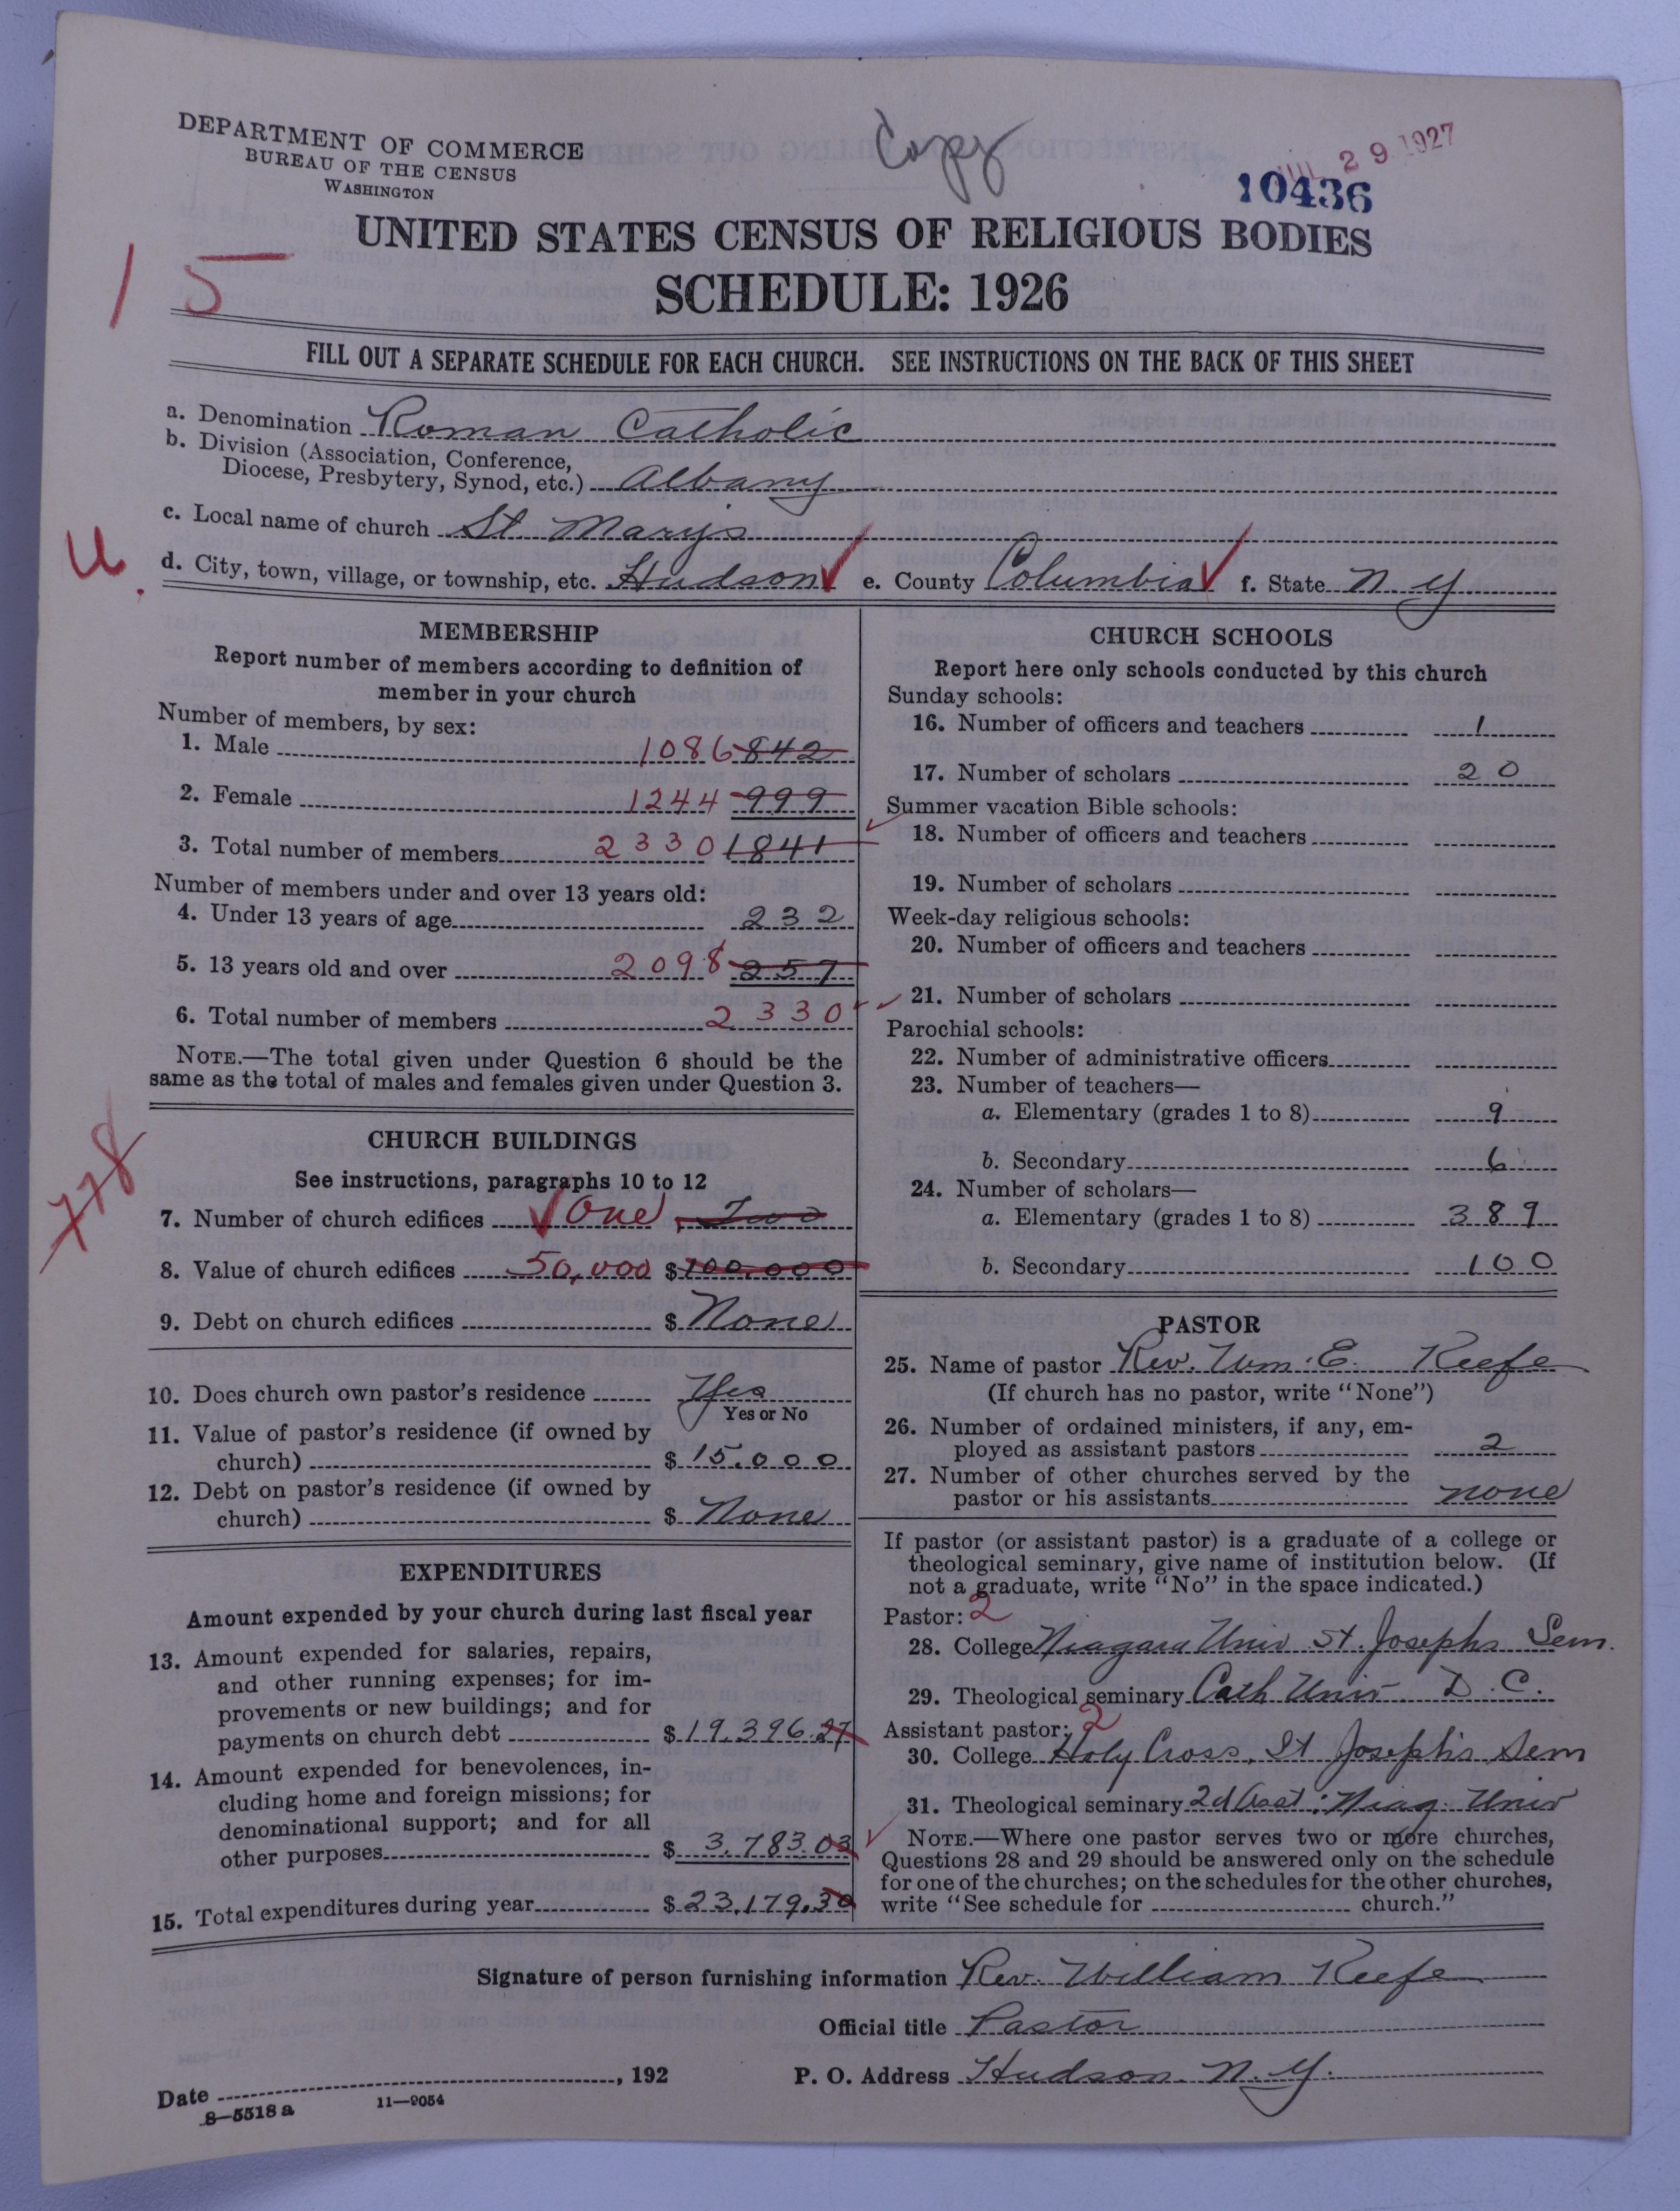 DEPARTMENT OF COMMERCE
BUREAU OF THE CENSUS
WASHINGTON
Copy
JUL 29 1927
10436
UNITED STATES CENSUS OF RELIGIOUS BODIES
SCHEDULE: 1926
15
FILL OUT A SEPARATE SCHEDULE FOR EACH CHURCH. SEE INSTRUCTIONS ON THE BACK OF THIS SHEET
a. Denomination Roman Catholic
b. Division (Association, Conference,
Diocese, Presbytery, Synod, etc.) Albany
c. Local name of church St. Marys
U.
d. City, town, village, or township, etc. Hudson e. County Columbia f. State N. Y
MEMBERSHIP
Report number of members according to definition of
member in your church
Number of members, by sex:
1. Male 1086 842
2. Female 1244 999
3. Total number of members 2330 1841
Number of members under and over 13 years old:
4. Under 13 years of age 232
5. 13 years old and over 2098 257
6. Total number of members 2330
NOTE.—The total given under Question 6 should be the
same as the total of males and females given under Question 3.
778
CHURCH BUILDINGS
See instructions, paragraphs 10 to 12
7. Number of church edifices One Two
8. Value of church edifices 50,000 $100.000
9. Debt on church edifices $ None
10. Does church own pastor's residence Yes
Yes or No
11. Value of pastor's residence (if owned by
church) $ 15.000
12. Debt on pastor's residence (if owned by
church) $ None
EXPENDITURES
Amount expended by your church during last fiscal year
13. Amount expended for salaries, repairs,
and other running expenses; for im-
provements or new buildings; and for
payments on church debt $ 19.396.27
14. Amount expended for benevolences, in-
cluding home and foreign missions; for
denominational support; and for all
other purposes $ 3.783.03
15. Total expenditures during year $ 23.179.30
CHURCH SCHOOLS
Report here only schools conducted by this church
Sunday schools:
16. Number of officers and teachers 1
17. Number of scholars 20
Summer vacation Bible schools:
18. Number of officers and teachers
19. Number of scholars
Week-day religious schools:
20. Number of officers and teachers
21. Number of scholars
Parochial schools:
22. Number of administrative officers
23. Number of teachers—
a. Elementary (grades 1 to 8) 9
b. Secondary 6
24. Number of scholars—
a. Elementary (grades 1 to 8) 389
b. Secondary 100
PASTOR
25. Name of pastor Rev. Wm. E. Keefe
(If church has no pastor, write "None")
26. Number of ordained ministers, if any, em-
ployed as assistant pastors 2
27. Number of other churches served by the
pastor or his assistants none
If pastor (or assistant pastor) is a graduate of a college or
theological seminary, give name of institution below. (If
not a graduate, write "No" in the space indicated.)
Pastor: 2
28. College Niagara Univ St. Josephs Sem.
29. Theological seminary Cath Univ D. C.
Assistant pastor: 2
30. College Holy Cross, St Joseph's Sem
31. Theological seminary 2d Asst: Niag. Univ
NOTE.—Where one pastor serves two or more churches,
Questions 28 and 29 should be answered only on the schedule
for one of the churches; on the schedules for the other churches,
write "See schedule for church."
Signature of person furnishing information Rev. William Keefe
Official title Pastor
Date , 192 P. O. Address Hudson N. Y.
8—5518 a 11—9054